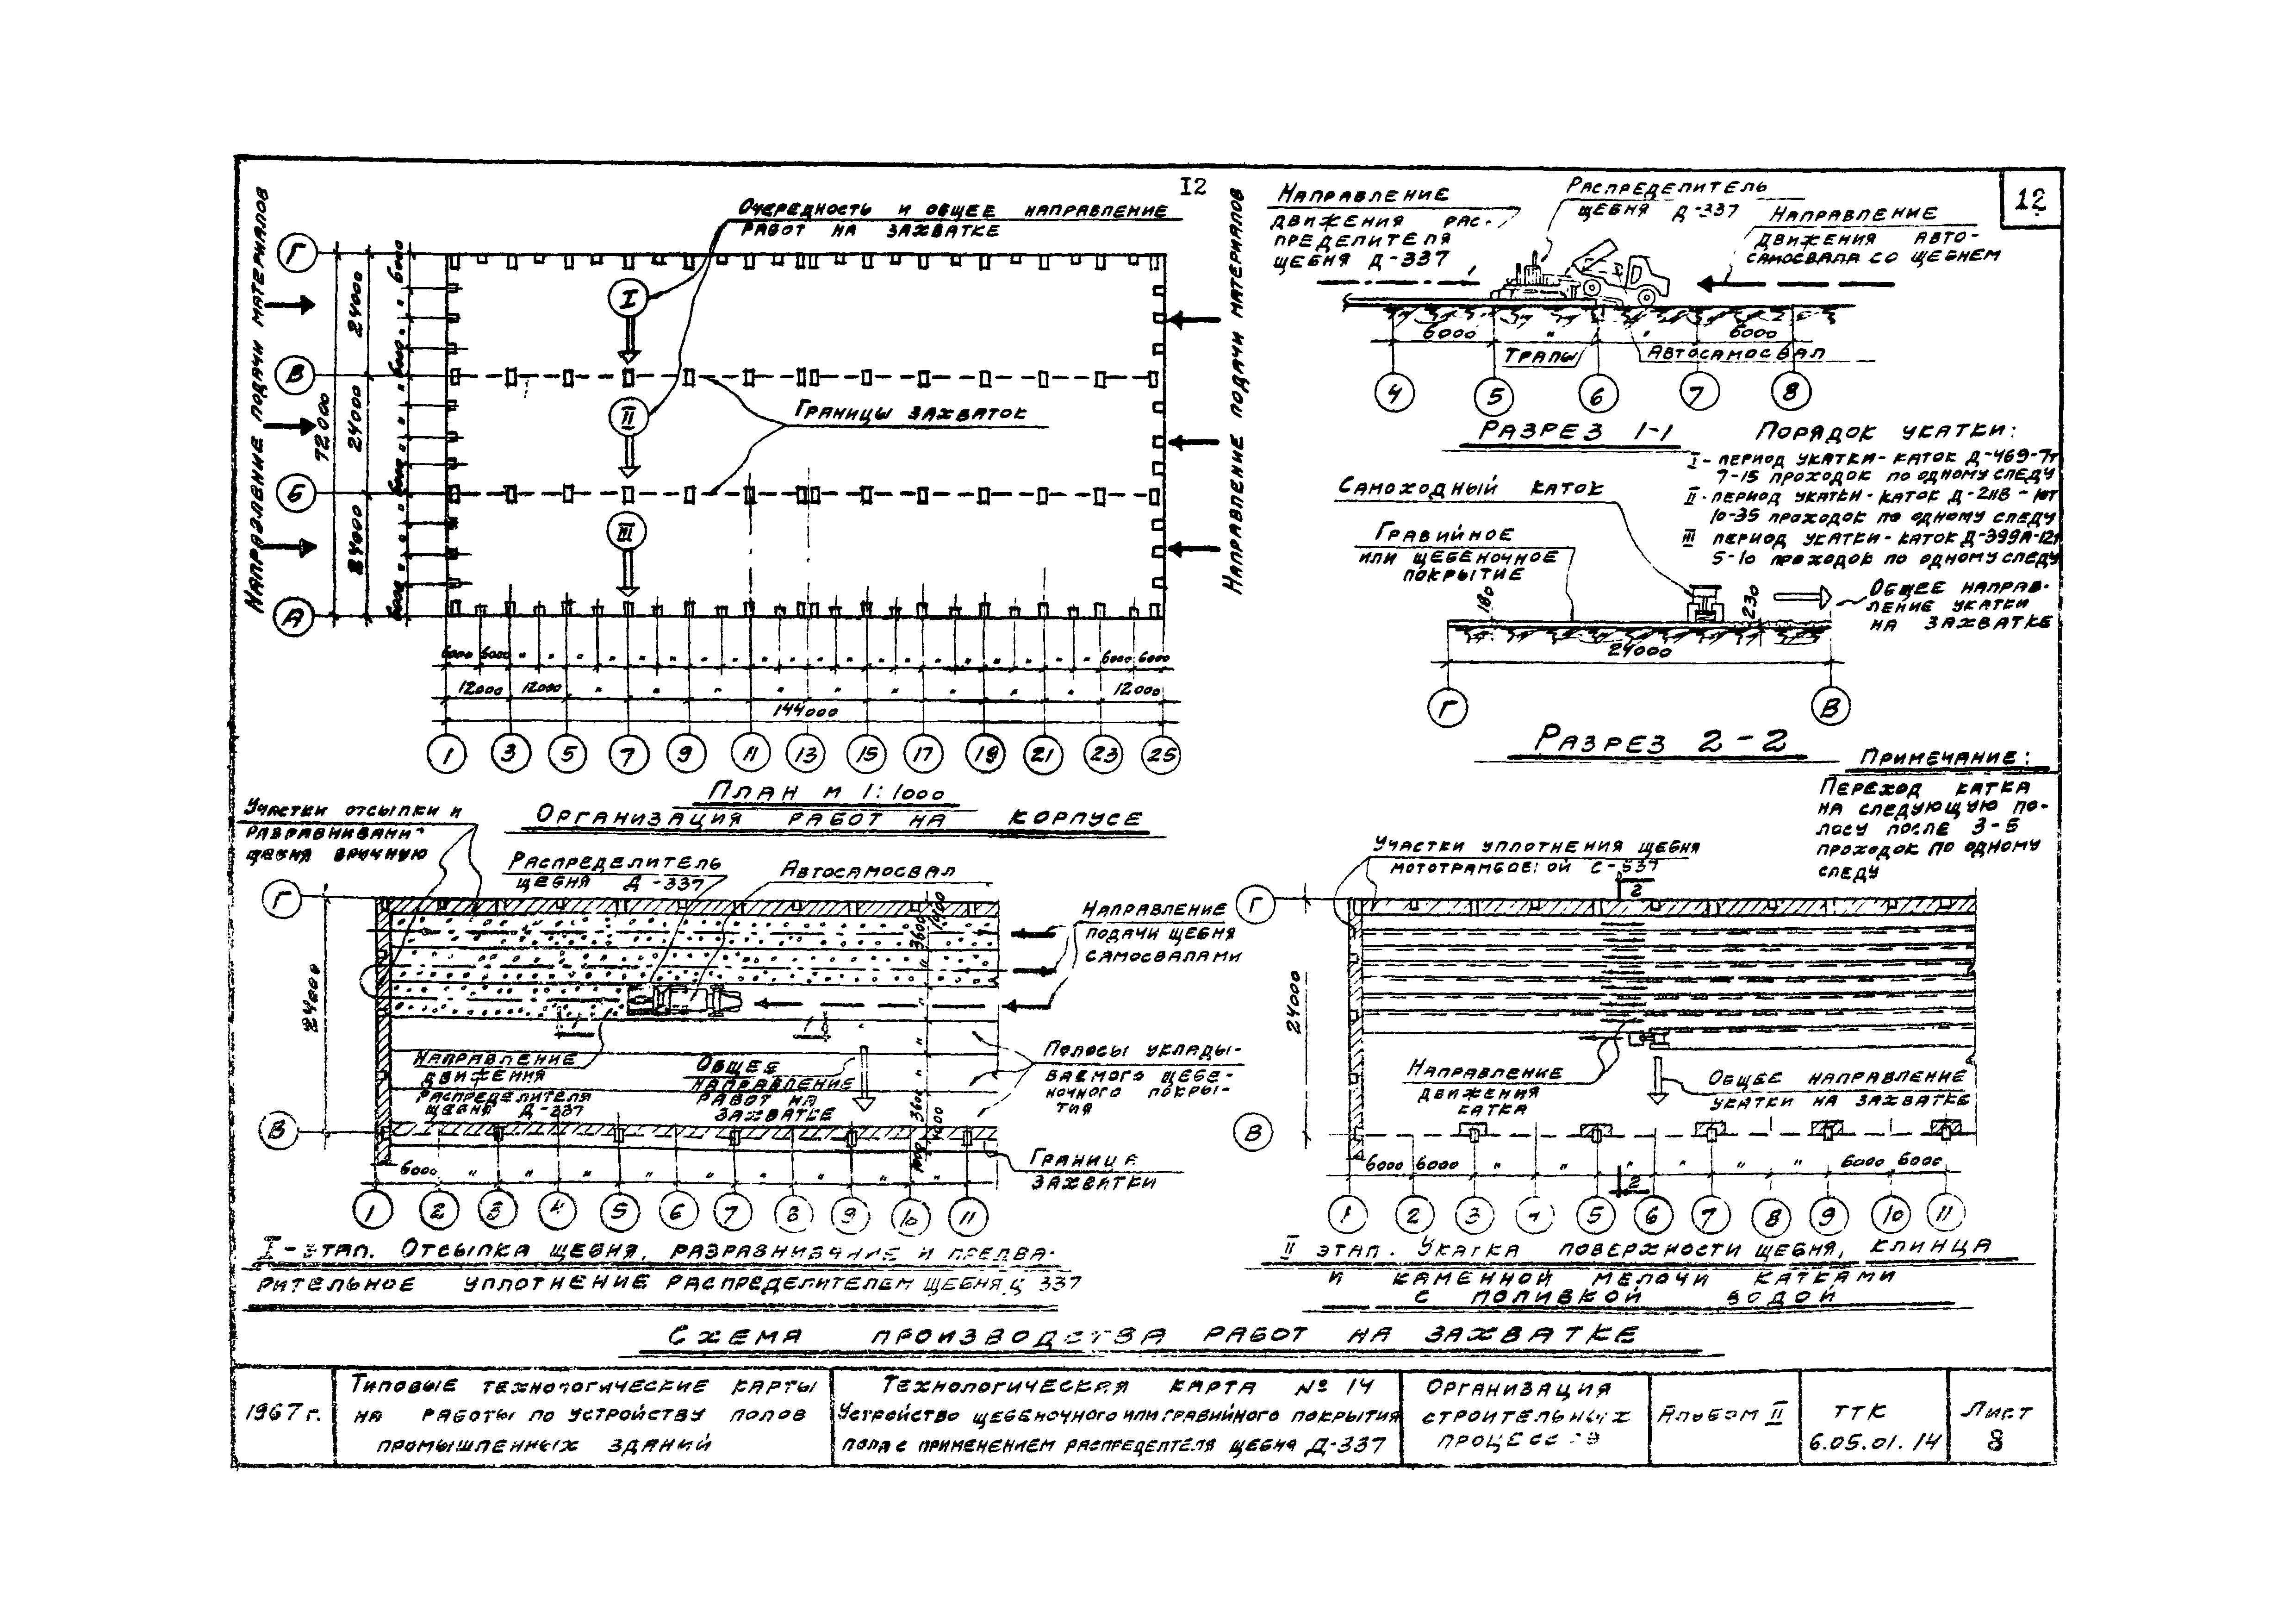 12
12
Направление подачи материалов
Очередность и общее направление
работ на захватке
Г
В
Б
А
I
II
III
Границы захваток
24000
24000
24000
72000
6000
6000
6000
6000
Направление подачи материалов
6000 6000 " " " " " " " " " " " " 6000 6000
12000 12000 " " " " " " " " " 12000
144000
1 3 5 7 9 11 13 15 17 19 21 23 25
План м 1:1000
Организация работ на корпусе
Направление
движения рас-
пределителя
щебня Д-337
Распределитель
щебня Д-337
Направление
движения авто-
самосвала со щебнем
6000 " " 6000
Трапы
Автосамосвал
4 5 6 7 8
Разрез 1-1
Порядок укатки:
I - период укатки - каток Д-469-7т
7-15 проходок по одному следу
II - период укатки - каток Д-211В - 10т
10-35 проходок по одному следу
III период укатки - каток Д-399А-12т
5-10 проходок по одному следу
Самоходный каток
Гравийное
или щебеночное
покрытие
180
230
Общее направ-
ление укатки
на захватке
24000
Г В
Разрез 2-2
Примечание:
Переход катка
на следующую по-
лосу после 3-5
проходок по одному
следу
Участки отсыпки и
разравнивани
щебня вручную
Распределитель
щебня Д-337
Автосамосвал
Г
В
24000
3600
1400
Направление
подачи щебня
самосвалами
Направление
движения
распределителя
щебня Д-337
Общее
направление
работ на
захватке
Полосы уклады-
ваемого щебе-
ночного покры-
тия
3600
Граница
захватки
6000 " " " " " " " " "
1 2 3 4 5 6 7 8 9 10 11
I - этап. Отсыпка щебня, разравнивание и предва-
рительное уплотнение распределителем щебня Д 337
Участки уплотнения щебня
мототрамбовкой С-
2
Г
В
24000
Направление
движения
катка
Общее направление
укатки на захватке
6000 6000 " " " " " " 6000 6000
2
1 2 3 4 5 6 7 8 9 10 11
II этап. Укатка поверхности щебня, клинца
и каменной мелочи катками
с поливкой водой
Схема производства работ на захватке
1967г.
Типовые технологические карты
на работы по устройству полов
промышленных зданий
Технологическая карта № 14
Устройство щебеночного или гравийного покрытия
пола с применением распределителя щебня Д-337
Организация
строительных
процессов
Альбом II
ТТК
6.05.01.14
Лист
8